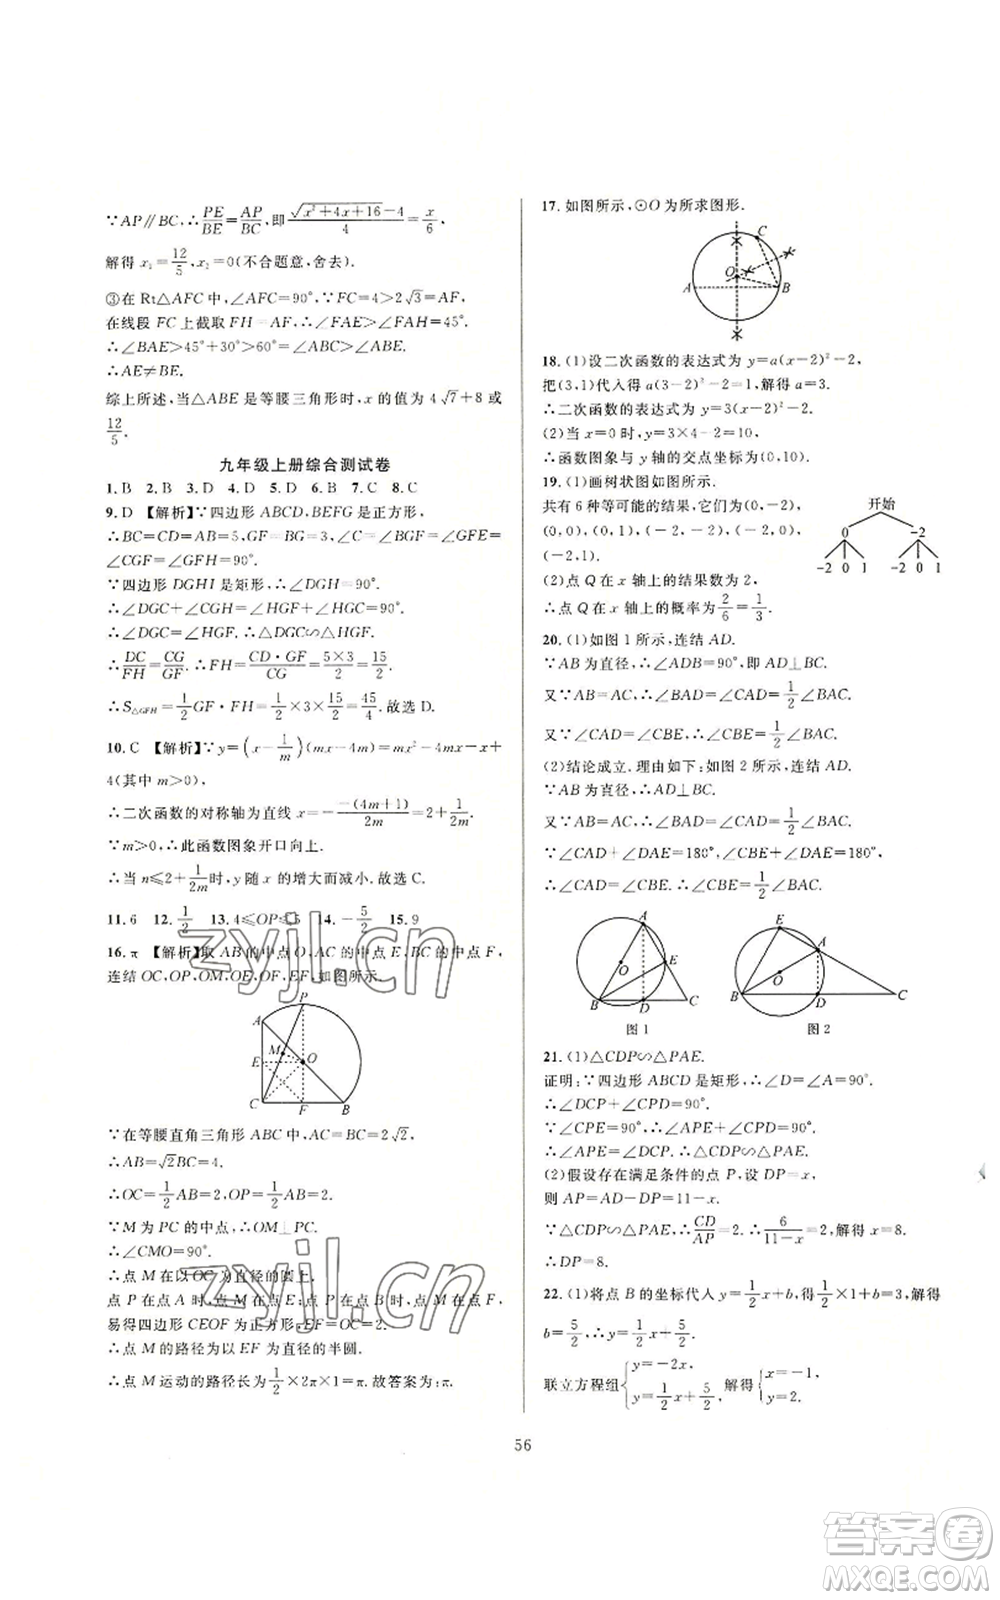 ∵AP∥BC,∴PE/BE=AP/BC,即(√(x²+4x+16)-4)/4=x/6
解得 x₁=12/5,x₂=0(不合题意,舍去).
③在 Rt△AFC 中,∠AFC=90°,∵FC=4>2√3=AF,
在线段 FC 上截取 FH=AF,∴∠FAE>∠FAH=45°.
∴∠BAE>45°+30°>60°=∠ABC>∠BAE.
∴AE≠BE.
综上所述,当△ABE 是等腰三角形时,x 的值为 4√7+8或
12/5.
九年级上册综合测试卷
1.B 2.B 3.D 4.D 5.D 6.B 7.C 8.C
9.D 【解析】∵四边形 ABCD,BEFG 是正方形,
∴BC=CD=AB=5,GF=BG=3,∠C=∠BGF=∠GFE=
∠CGF=∠GFH=90°.
∵四边形 DGHI 是矩形,∴∠DGH=90°.
∴∠DGC+∠CGH=∠HGF+∠HGC=90°.
∴∠DGC=∠HGF.∴△DGC∽△HGF.
∴DC/FH=CG/GF.∴FH=CD·GF/CG=5×3/2=15/2.
∴S△GFH=1/2 GF·FH=1/2×3×15/2=45/4.故选 D.
10.C 【解析】∵y=(x-1/m)(mx-4m)=mx²-4mx-x+
4(其中 m>0),
∴二次函数的对称轴为直线 x=-(-(4m+1))/2m=2+1/2m.
∵m>0,∴此函数图象开口向上.
∴当 n≤2+1/2m时,y 随 x 的增大而减小.故选 C.
11.6 12.1/2 13.4≤OP≤5 14.-5/2 15.9
16.π 【解析】取 AB 的中点 O,AC 的中点 E,BC 的中点 F,
连结 OC,OP,OM,OE,OF,EF,如图所示.
P
A
M
E
O
C
F
B
∵在等腰直角三角形 ABC 中,AC=BC=2√2,
∴AB=√2BC=4.
∴OC=1/2AB=2,OP=1/2AB=2.
∵M 为 PC 的中点,∴OM⊥PC.
∴∠CMO=90°.
∴点 M 在以 OC 为直径的圆上.
点 P 在点 A 时,点 M 在点 E;点 P 在点 B 时,点 M 在点 F,
易得四边形 CEOF 为正方形,EF=OC=2.
∴点 M 的路径为以 EF 为直径的半圆.
∴点 M 运动的路径长为1/2×2π×1=π.故答案为:π.
17.如图所示,⊙O 为所求图形.
C
O
A
B
18.(1)设二次函数的表达式为 y=a(x-2)²-2,
把(3,1)代入得 a(3-2)²-2=1,解得 a=3.
∴二次函数的表达式为 y=3(x-2)²-2.
(2)当 x=0 时,y=3×4-2=10.
∴函数图象与 y 轴的交点坐标为(0,10).
19.(1)画树状图如图所示.
共有 6 种等可能的结果,它们为(0,-2),
(0,0),(0,1),(-2,-2),(-2,0),
(-2,1).
开始
0 -2
-2 0 1 -2 0 1
(2)点 Q 在 x 轴上的结果数为 2,
∴点 Q 在 x 轴上的概率为2/6=1/3.
20.(1)如图 1 所示,连结 AD.
∵AB 为直径,∴∠ADB=90°,即 AD⊥BC.
又∵AB=AC,∴∠BAD=∠CAD=1/2∠BAC.
又∵∠CAD=∠CBE,∴∠CBE=1/2∠BAC.
(2)结论成立.理由如下:如图 2 所示,连结 AD.
∵AB 为直径,∴AD⊥BC.
又∵AB=AC,∴∠BAD=∠CAD=1/2∠BAC.
∵∠CAD+∠DAE=180°,∠CBE+∠DAE=180°,
∴∠CAD=∠CBE,∴∠CBE=1/2∠BAC.
A
O
E
B
D
C
图 1
E
A
O
B
D
C
图 2
21.(1)△CDP∽△PAE.
证明:∵四边形 ABCD 是矩形,∴∠D=∠A=90°.
∴∠DCP+∠CPD=90°.
∵∠CPE=90°,∴∠APE+∠CPD=90°.
∴∠APE=∠DCP.∴△CDP∽△PAE.
(2)假设存在满足条件的点 P,设 DP=x,
则 AP=AD-DP=11-x.
∵△CDP∽△PAE,∴CD/AP=2.∴6/(11-x)=2,解得 x=8.
∴DP=8.
22.(1)将点 B 的坐标代入 y=1/2x+b,得1/2×1+b=3,解得
b=5/2,∴y=1/2x+5/2.
联立方程组{y=-2x, y=1/2x+5/2,解得{x=-1, y=2.
56
zyjl.cn
zyjl.cn
答案卷
MXQE.COM